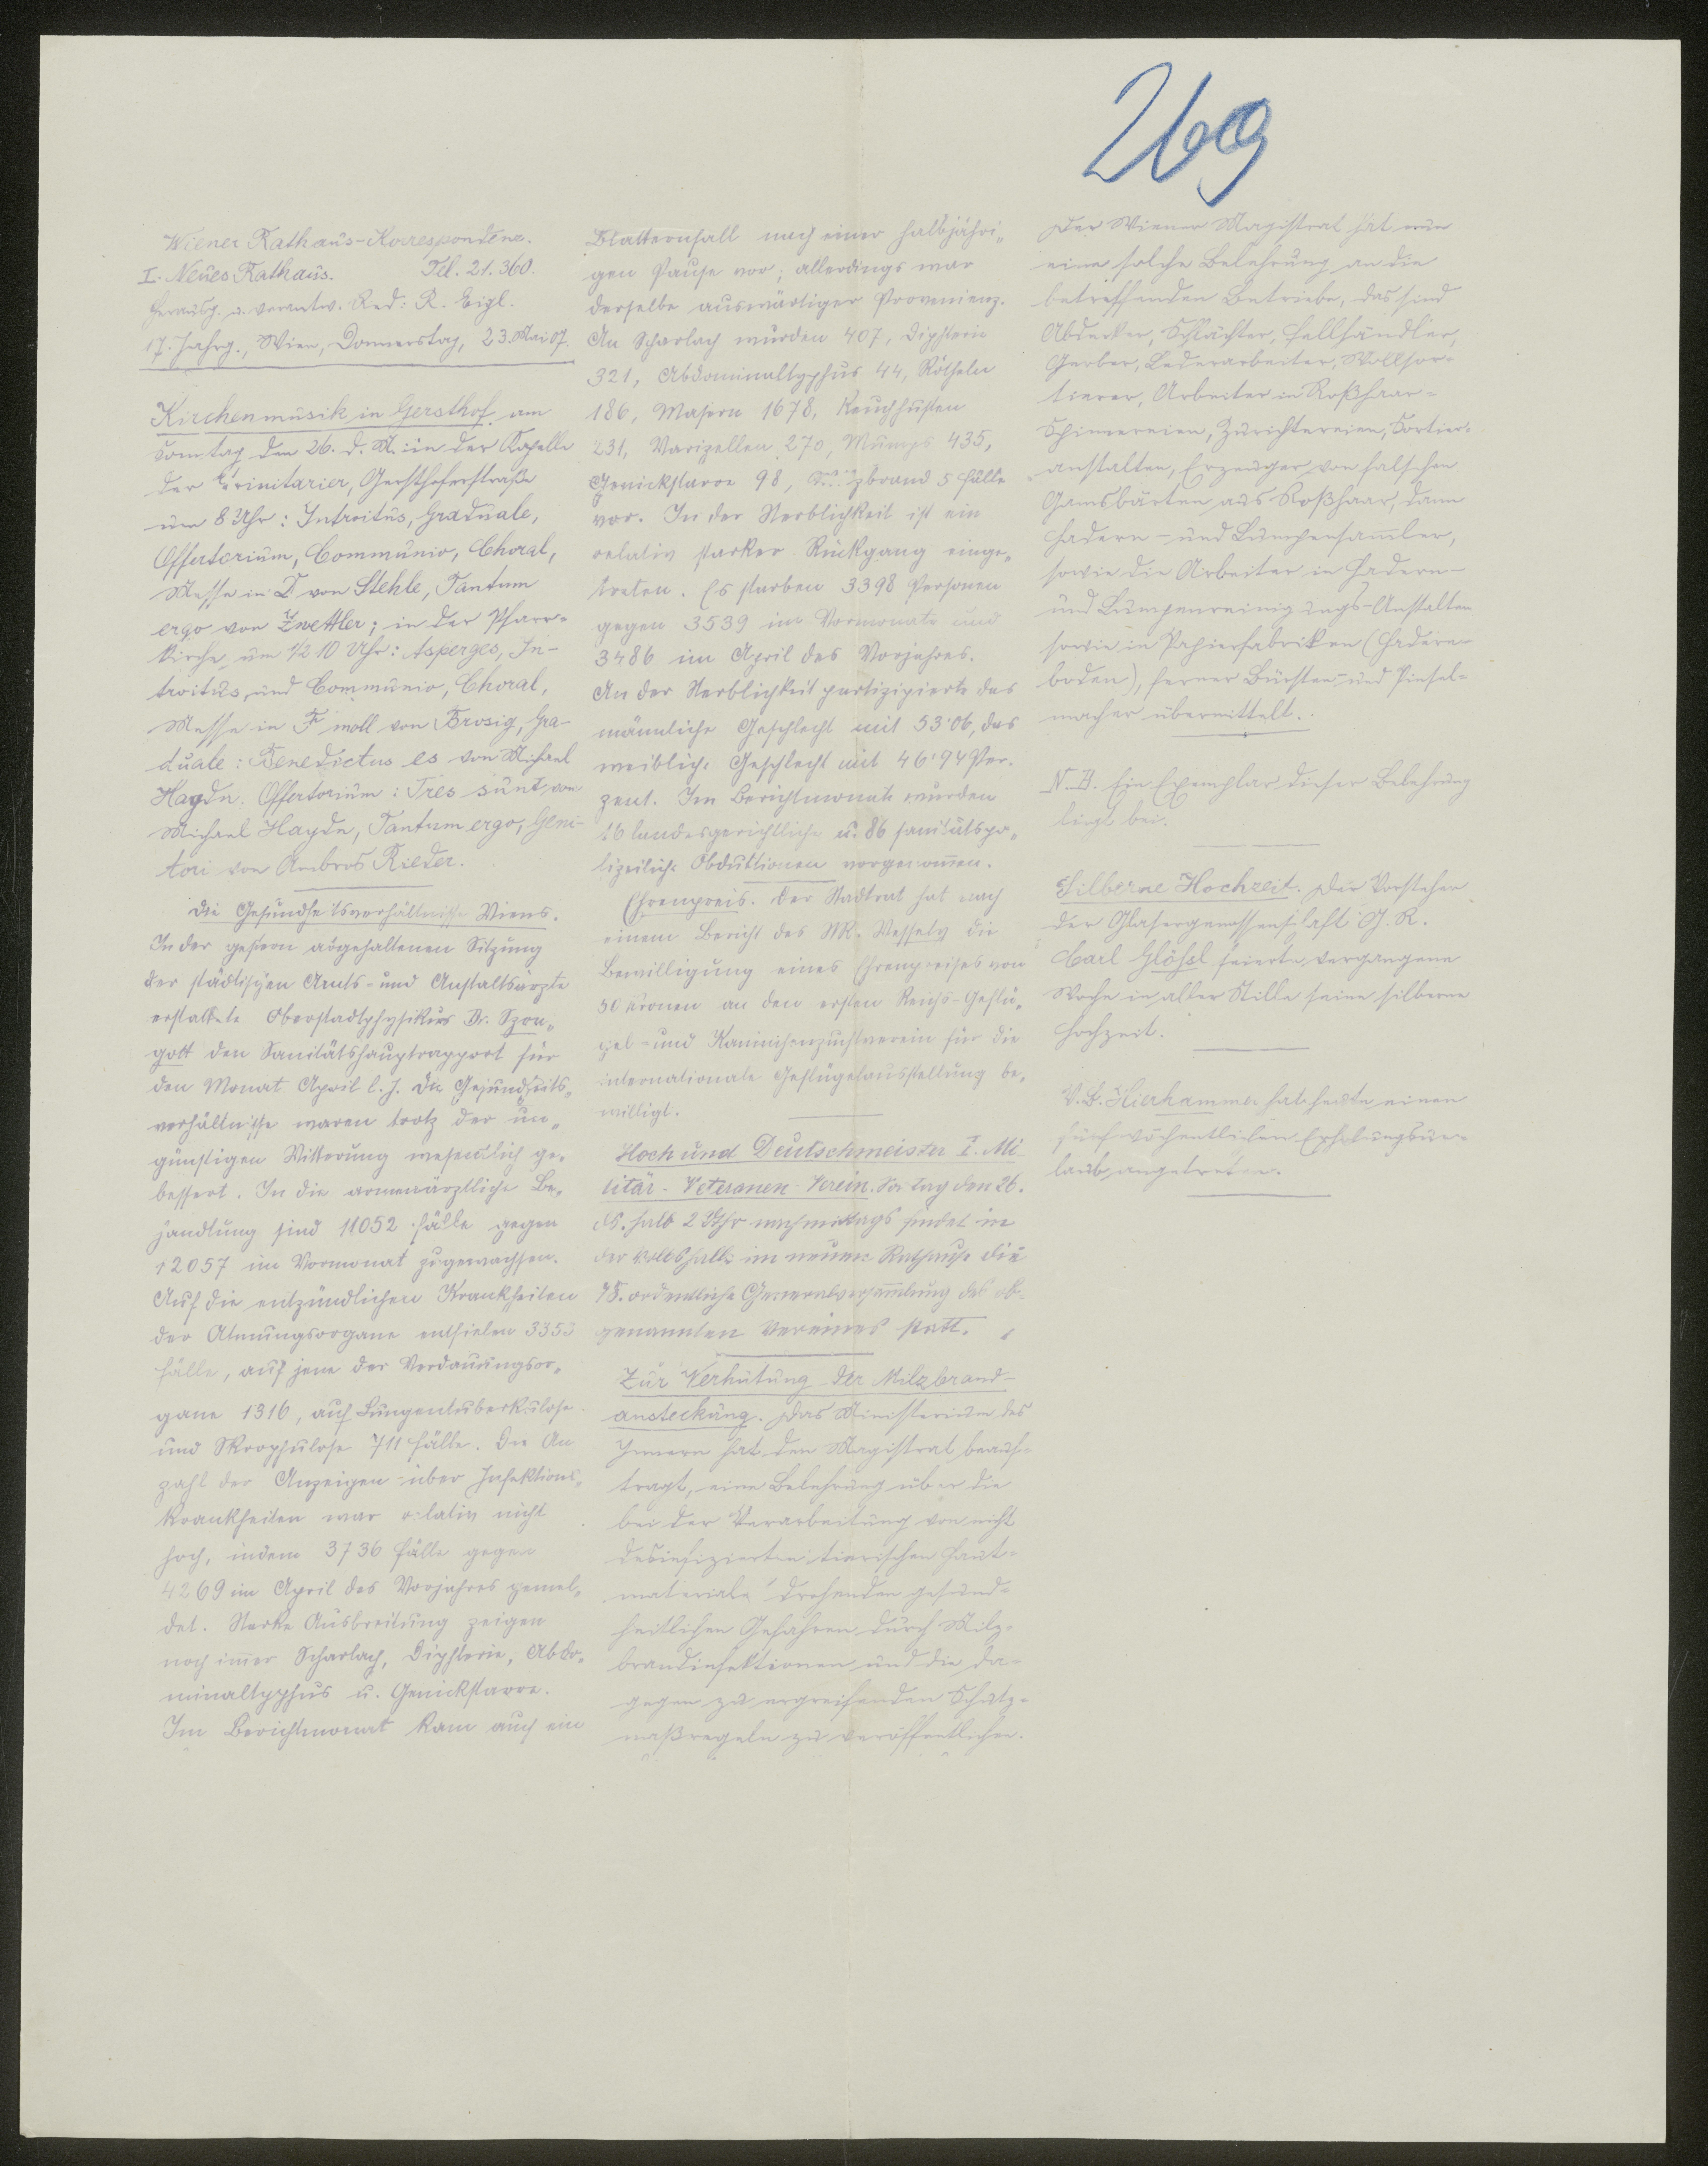 269
Wiener Rathaus-Korrespondenz.
I. Neues Rathaus. Tel. 21.360.
Herausg. u. verantw. Red: R. Eigl.
17. Jahrg., Wien, Donnerstag, 23. Mai 07.
Kirchenmusik in Gersthof am
Sonntag den 26. d. M. in der Kapelle
der Trinitarier, Gersthoferstraße
um 8 Uhr: Introitus, Graduale,
Offertorium, Communio, Choral,
Messe in D von Stehle, Tantum
ergo von Zwettler; in der Pfarr-
kirche um 1/2 10 Uhr: Asperges, In-
troitus und Communio, Choral,
Messe in F moll von Brosig, Gra-
duale: Benedictus es von Michael
Haydn. Offertorium: Tres sunt von
Michael Haydn, Tantum ergo, Geni-
tori von Ambros Rieder.
Die Gesundheitsverhältnisse Wiens.
In der gestern abgehaltenen Sitzung
der städtischen Amts- und Anstaltsärzte
erstattete Oberstadtphysikus Dr. Szon-
gott den Sanitätshauptrapport für
den Monat April l. J. Die Gesundheits-
verhältnisse waren trotz der un-
günstigen Witterung wesentlich ge-
bessert. In die armenärztliche Be-
handlung sind 11052 Fälle gegen
12057 im Vormonat zugewachsen.
Auf die entzündlichen Krankheiten
der Atmungsorgane entfielen 3353
Fälle, auf jene der Verdauungsor-
gane 1316, auf Lungentuberkulose
und Skrophulose 711 Fälle. Die An
zahl der Anzeigen über Infektions-
krankheiten war relativ nicht
hoch, indem 3736 Fälle gegen
4269 im April des Vorjahres gemel-
det. Starke Ausbreitung zeigen
noch immer Scharlach, Diphterie, Abdo-
minaltyphus u. Genickstarre.
Im Berichtmonat kam auch ein
Blatternfall nach einer halbjähri-
gen Pause vor; allerdings war
derselbe auswärtiger Provenienz.
An Scharlach wurden 407, Diphterie
321, Abdominaltyphus 44, Rötheln
186, Masern 1678, Keuchhusten
231, Varizellen 270, Mumps 435,
Genickstarre 98, Milzbrand 5 Fälle
vor. In der Sterblichkeit ist ein
relativ starker Rückgang einge-
treten. Es starben 3398 Personen
gegen 3539 im Vormonate und
3486 im April des Vorjahres.
An der Sterblichkeit partizipierte das
männliche Geschlecht mit 53·06, das
weibliche Geschlecht mit 46·94 Per-
zent. Im Berichtmonate wurden
16 landesgerichtliche u. 86 sanitätspo-
lizeiliche Obduktionen vorgenommen.
Ehrenpreis. Der Stadtrat hat nach
einem Bericht des StR. Wessely die
Bewilligung eines Ehrenpreises von
50 Kronen an den ersten Reichs-Geflü-
gel- und Kaninchenzuchtverein für die
internationale Geflügelausstellung be-
willigt.
Hoch und Deutschmeister I. Mi-
litär-Veteranen-Verein. Sonntag den 26.
ds. halb 2 Uhr nachmittags findet in
der Volkshalle im neuen Rathause die
78. ordentliche Generalversammlung des ob-
genannten Vereines statt.
Zur Verhütung der Milzbrand-
ansteckung. Das Ministerium des
Innern hat den Magistrat beauf-
tragt, eine Belehrung über die
bei der Verarbeitung von nicht
desinfizierten tierischen Haut-
materiale drohenden gesund-
heitlichen Gefahren durch Milz-
brandinfektionen und die da-
gegen zu ergreifenden Schutz-
maßregeln zu veröffentlichen.
Der Wiener Magistrat hat nun
eine solche Belehrung an die
betreffenden Betriebe, das sind
Abdecker, Schlächter, Fellhändler,
Gerber, Lederarbeiter, Wollsor-
tierer, Arbeiter in Roßhaar-
Spinnereien, Zurichtereien, Sortier-
anstalten, Erzeuger von falschen
Gamsbärten aus Roßhaar, dann
Hadern- und Lumpensammler,
sowie die Arbeiter in Hadern-
und Lumpenreinigungs-Anstalten
sowie in Papierfabriken (Hadern-
boden), ferner Bürsten- und Pinsel-
macher übermittelt.
N.B. Ein Exemplar dieser Belehrung
liegt bei.
Silberne Hochzeit. Der Vorsteher
der Glasergenossenschaft G. R.
Carl Glößl feierte vergangene
Woche in aller Stille seine silberne
Hochzeit.
V.B. Hierhammer hat heute einen
fünfwöchentlichen Erholungsur-
laub angetreten.